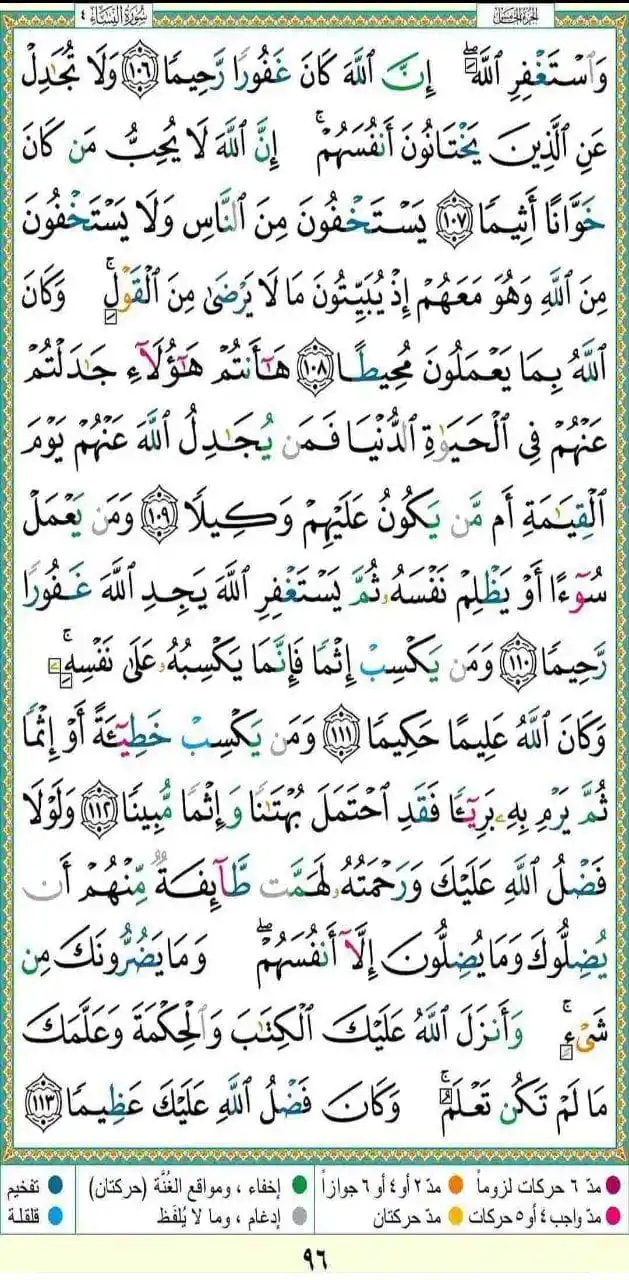 الجزء الخامس
سورة النساء ٤
وَاسْتَغْفِرِ اللَّهَ ۖ إِنَّ اللَّهَ كَانَ غَفُورًا رَّحِيمًا ١٠٦ وَلَا تُجَادِلْ
عَنِ الَّذِينَ يَخْتَانُونَ أَنفُسَهُمْ ۚ إِنَّ اللَّهَ لَا يُحِبُّ مَن كَانَ
خَوَّانًا أَثِيمًا ١٠٧ يَسْتَخْفُونَ مِنَ النَّاسِ وَلَا يَسْتَخْفُونَ
مِنَ اللَّهِ وَهُوَ مَعَهُمْ إِذْ يُبَيِّتُونَ مَا لَا يَرْضَىٰ مِنَ الْقَوْلِ ۚ وَكَانَ
اللَّهُ بِمَا يَعْمَلُونَ مُحِيطًا ١٠٨ هَٰٓأَنتُمْ هَٰٓؤُلَآءِ جَٰدَلْتُمْ
عَنْهُمْ فِي الْحَيَوٰةِ الدُّنْيَا فَمَن يُجَٰدِلُ اللَّهَ عَنْهُمْ يَوْمَ
الْقِيَٰمَةِ أَم مَّن يَكُونُ عَلَيْهِمْ وَكِيلًا ١٠٩ وَمَن يَعْمَلْ
سُوٓءًا أَوْ يَظْلِمْ نَفْسَهُۥ ثُمَّ يَسْتَغْفِرِ اللَّهَ يَجِدِ اللَّهَ غَفُورًا
رَّحِيمًا ١١٠ وَمَن يَكْسِبْ إِثْمًا فَإِنَّمَا يَكْسِبُهُۥ عَلَىٰ نَفْسِهِۦ ۚ
وَكَانَ اللَّهُ عَلِيمًا حَكِيمًا ١١١ وَمَن يَكْسِبْ خَطِيٓـَٔةً أَوْ إِثْمًا
ثُمَّ يَرْمِ بِهِۦ بَرِيٓـًٔا فَقَدِ احْتَمَلَ بُهْتَٰنًا وَإِثْمًا مُّبِينًا ١١٢ وَلَوْلَا
فَضْلُ اللَّهِ عَلَيْكَ وَرَحْمَتُهُۥ لَهَمَّت طَّآئِفَةٌ مِّنْهُمْ أَن
يُضِلُّوكَ وَمَا يُضِلُّونَ إِلَّآ أَنفُسَهُمْ ۖ وَمَا يَضُرُّونَكَ مِن
شَيْءٍ ۚ وَأَنزَلَ اللَّهُ عَلَيْكَ الْكِتَٰبَ وَالْحِكْمَةَ وَعَلَّمَكَ
مَا لَمْ تَكُن تَعْلَمُ ۚ وَكَانَ فَضْلُ اللَّهِ عَلَيْكَ عَظِيمًا ١١٣
مدّ ٦ حركات لزوماً مدّ ٢ أو ٤ أو ٦ جوازاً إخفاء ، ومواقع الغُنَّة (حركتان) تفخيم
مدّ واجب ٤ أو ٥ حركات مدّ حركتان إدغام ، وما لا يُلفَظ قلقلة
٩٦